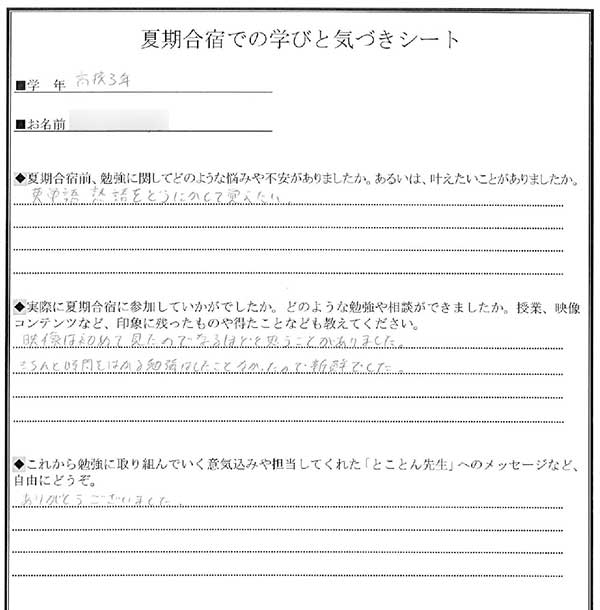 夏期合宿での学びと気づきシート
■学　年　高校3年
■お名前
◆夏期合宿前、勉強に関してどのような悩みや不安がありましたか。あるいは、叶えたいことがありましたか。
英単語 熟語をどうにかして覚えたい。
◆実際に夏期合宿に参加していかがでしたか。どのような勉強や相談ができましたか。授業、映像
コンテンツなど、印象に残ったものや得たことなども教えてください。
映像は初めて見たのでなるほどと思うことがありました。
きちんと時間をはかる勉強はしたことなかったので新鮮でした。
◆これから勉強に取り組んでいく意気込みや担当してくれた「とことん先生」へのメッセージなど、
自由にどうぞ。
ありがとうございました。